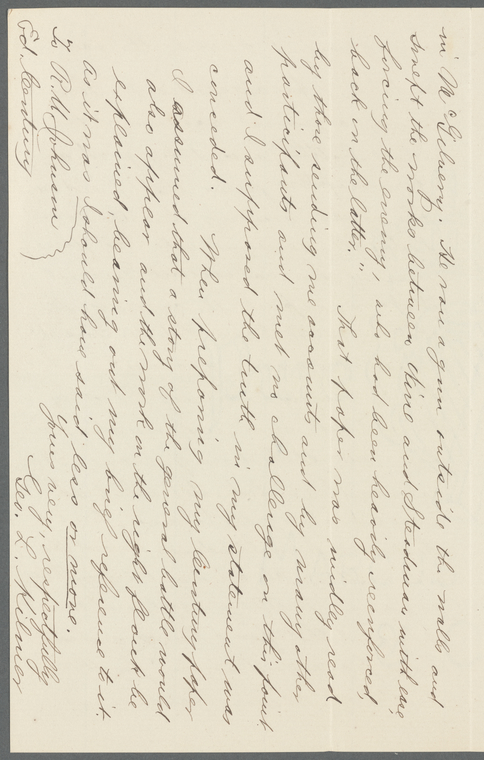 in McGilvery. He ran a gun outside the walls and
swept the works between mine and Steadman with ease,
forcing the enemy, who had been heavily reenforced,
back in the latter." That paper was widley read
by those sending me accounts and by many other
participants and met no challenge on this point
and I supposed the truth in my statement was
conceded. When preparing my Century paper
I assumed that a story of the general battle would
also appear and the work on the right flank be
explained, bearing out my brief reference to it.
As it was I should have said less or more.
Yours very, respectfully
Geo. L. Kilmer
To R. U. Johnson
Ed Century